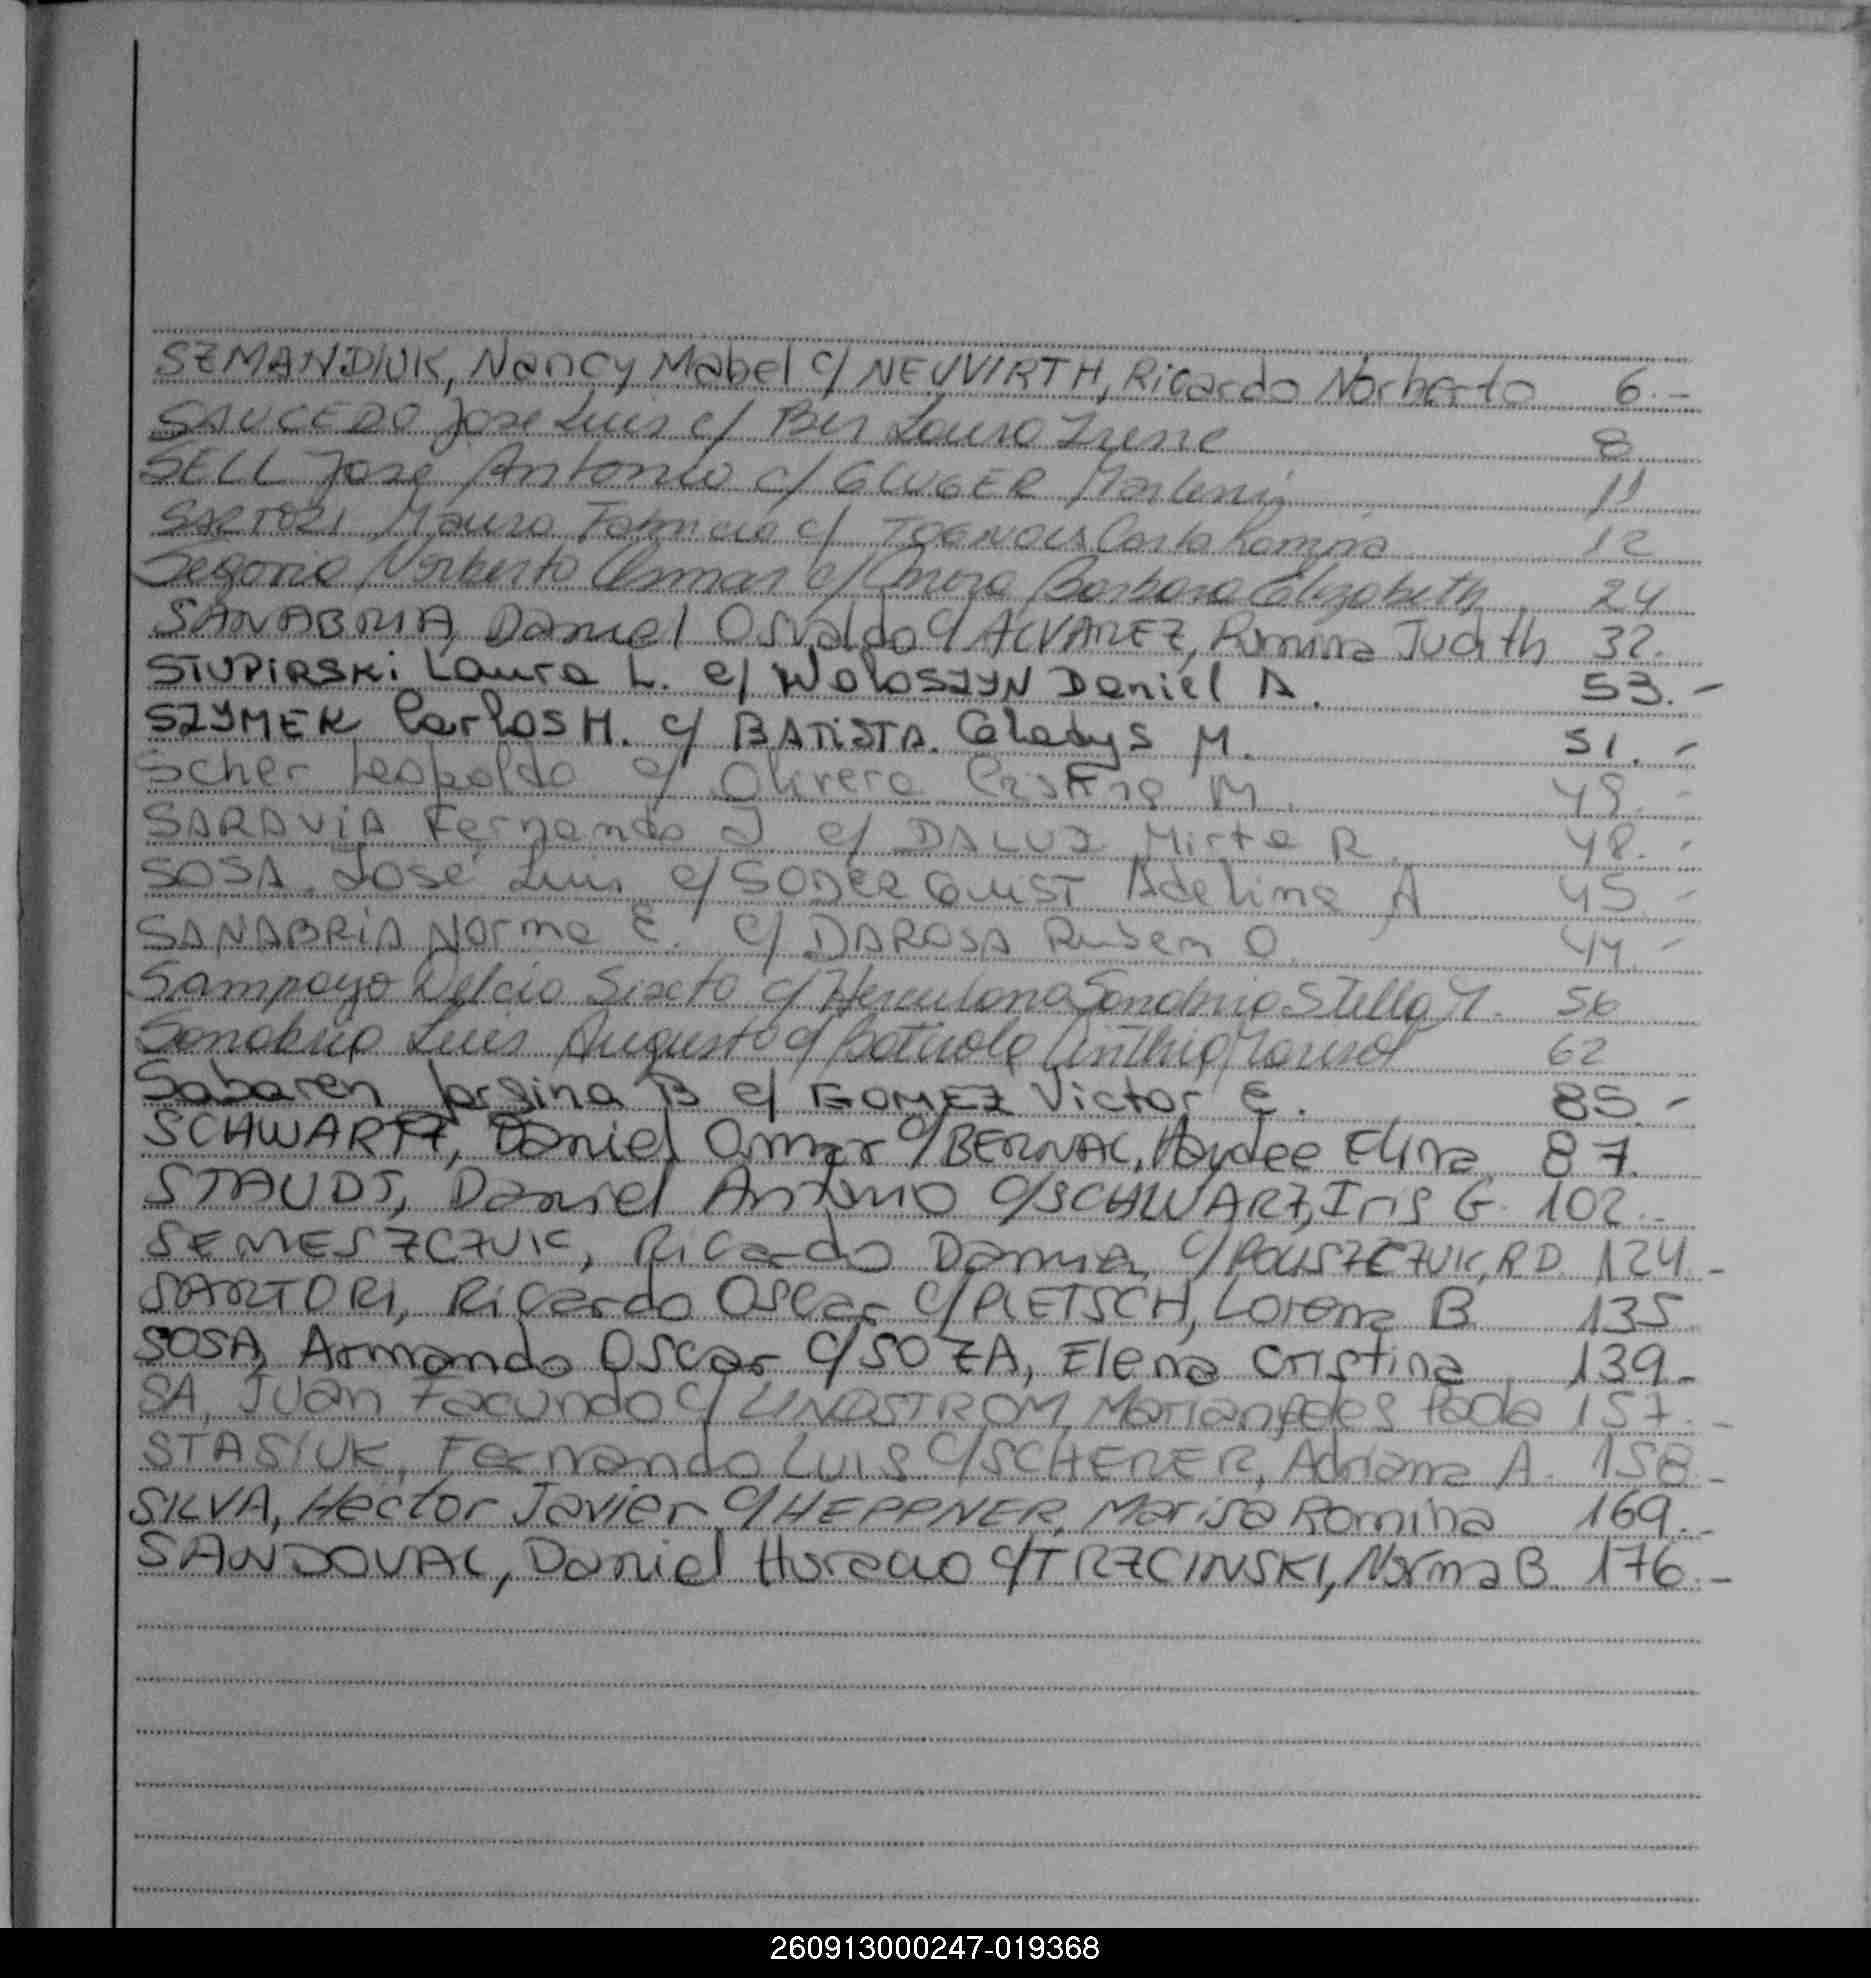 SZMANDIUK, Nancy Mabel c/ NEUVIRTH, Ricardo Norberto 6.-
SAUCEDO Jose Luis c/ Bes Laura Irene 8
SELL Jose Antonio c/ GLUGER Marlene 11
SARTORI Mauro Fabricio c/ Carla Romina 12
Segovia Norberto Osmar c/ Barbara Elizabeth 24
SANABRIA, Daniel Osvaldo c/ ALVAREZ, Romina Judith 32.
STUPIRSKI Laura L. c/ WOLOSZYN Daniel A. 53.-
SZYMEK Carlos H. c/ BATISTA Gladys M. 51.-
Scher Leopoldo c/ Olivera Cristina M. 49.-
SARAVIA Fernando J c/ DALUZ Mirta R. 48.-
SOSA José Luis c/ SODERQUIST Adelina A 45.-
SANABRIA Norma E. c/ DAROSA Ruben O. 44.-
Sampayo Delcio Sixto c/ Herculana Sanabria Stella M. 56
Sanabria Luis Augusto c/ Cinthia Marisol 62
Sabaren Jorgina B c/ GOMEZ Victor E. 85.-
SCHWARTZ, Daniel Omar c/ BERNAL, Haydee Elina 87.
STAUDT, Daniel Antonio c/ SCHWARZ, Iris G. 102.-
SEMESZCZUK, Ricardo Damian c/ POLISZCZUK, R D. 124.-
SARTORI, Ricardo Oscar c/ PLETSCH, Lorena B 135
SOSA, Armando Oscar c/ SOZA, Elena Cristina 139.-
SA, Juan Facundo c/ LINDSTROM, Mariangeles Paola 157.-
STASIUK, Fernando Luis c/ SCHERER, Adriana A. 158.-
SILVA, Hector Javier c/ HEPPNER, Marisa Romina 169.-
SANDOVAL, Daniel Horacio c/ TRZCINSKI, Norma B. 176.-
260913000247-019368